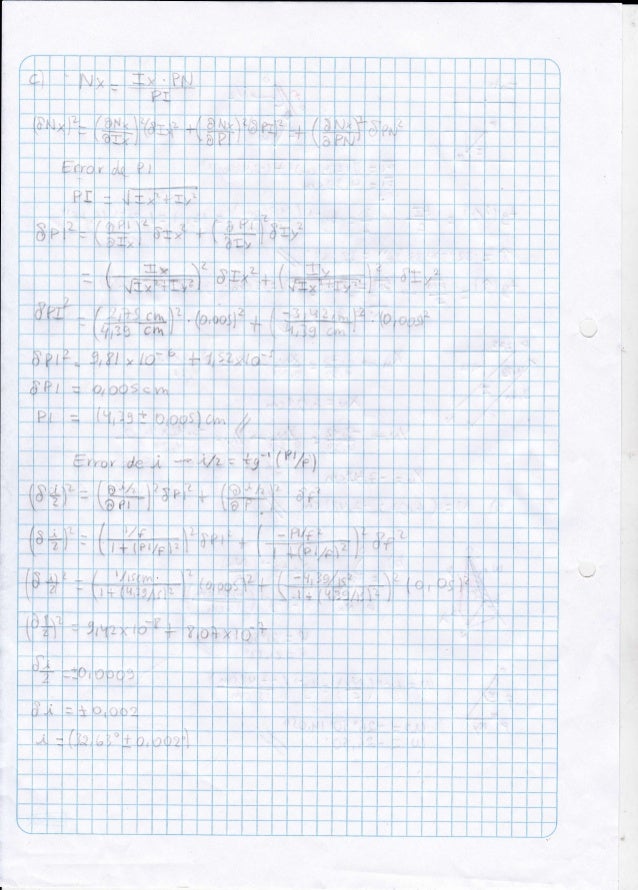 c) Nx = Ix·PN / PI
(∂Nx)² = (∂Nx/∂Ix)² (∂Ix)² + (∂Nx/∂PI)² ∂PI)² + (∂Nx/∂PN)² ∂PN²
Error de PI
PI = √Ix²+Iy²
δPI² = (∂PI/∂Ix)² δIx² + (∂PI/∂Iy)² δIy²
= (Ix/√Ix²+Iy²)² δIx² + (Iy/√Ix²+Iy²)² δIy²
δPI² = (2,75 cm/4,39 cm)² · (0,005)² + (-3,42 cm/4,39 cm)² · (0,005)²
δPI² = 9,81 x 10⁻⁶ + 1,52 x 10⁻⁵
δPI = 0,005 cm
PI = (4,39 ± 0,005) cm //
Error de i → i/2 = tg⁻¹ (PI/f)
(δ i/2)² = (∂i/2/∂PI)² δPI² + (∂i/2/∂f)² δf²
(δ i/2)² = (1/f/1+(PI/f)²)² δPI² + (-PI/f²/1+(PI/f)²)² δf²
(δ i/2)² = (1/15cm/1+(4,39/15)²)² (0,005)² + (-4,39/15²/1+(4,39/15)²)² (0,05)²
(δ i/2)² = 9,42 x 10⁻⁸ + 8,07 x 10⁻⁷
δ i/2 = ±0,0009
δi = ±0,002
i = (32,63° ± 0,002°)